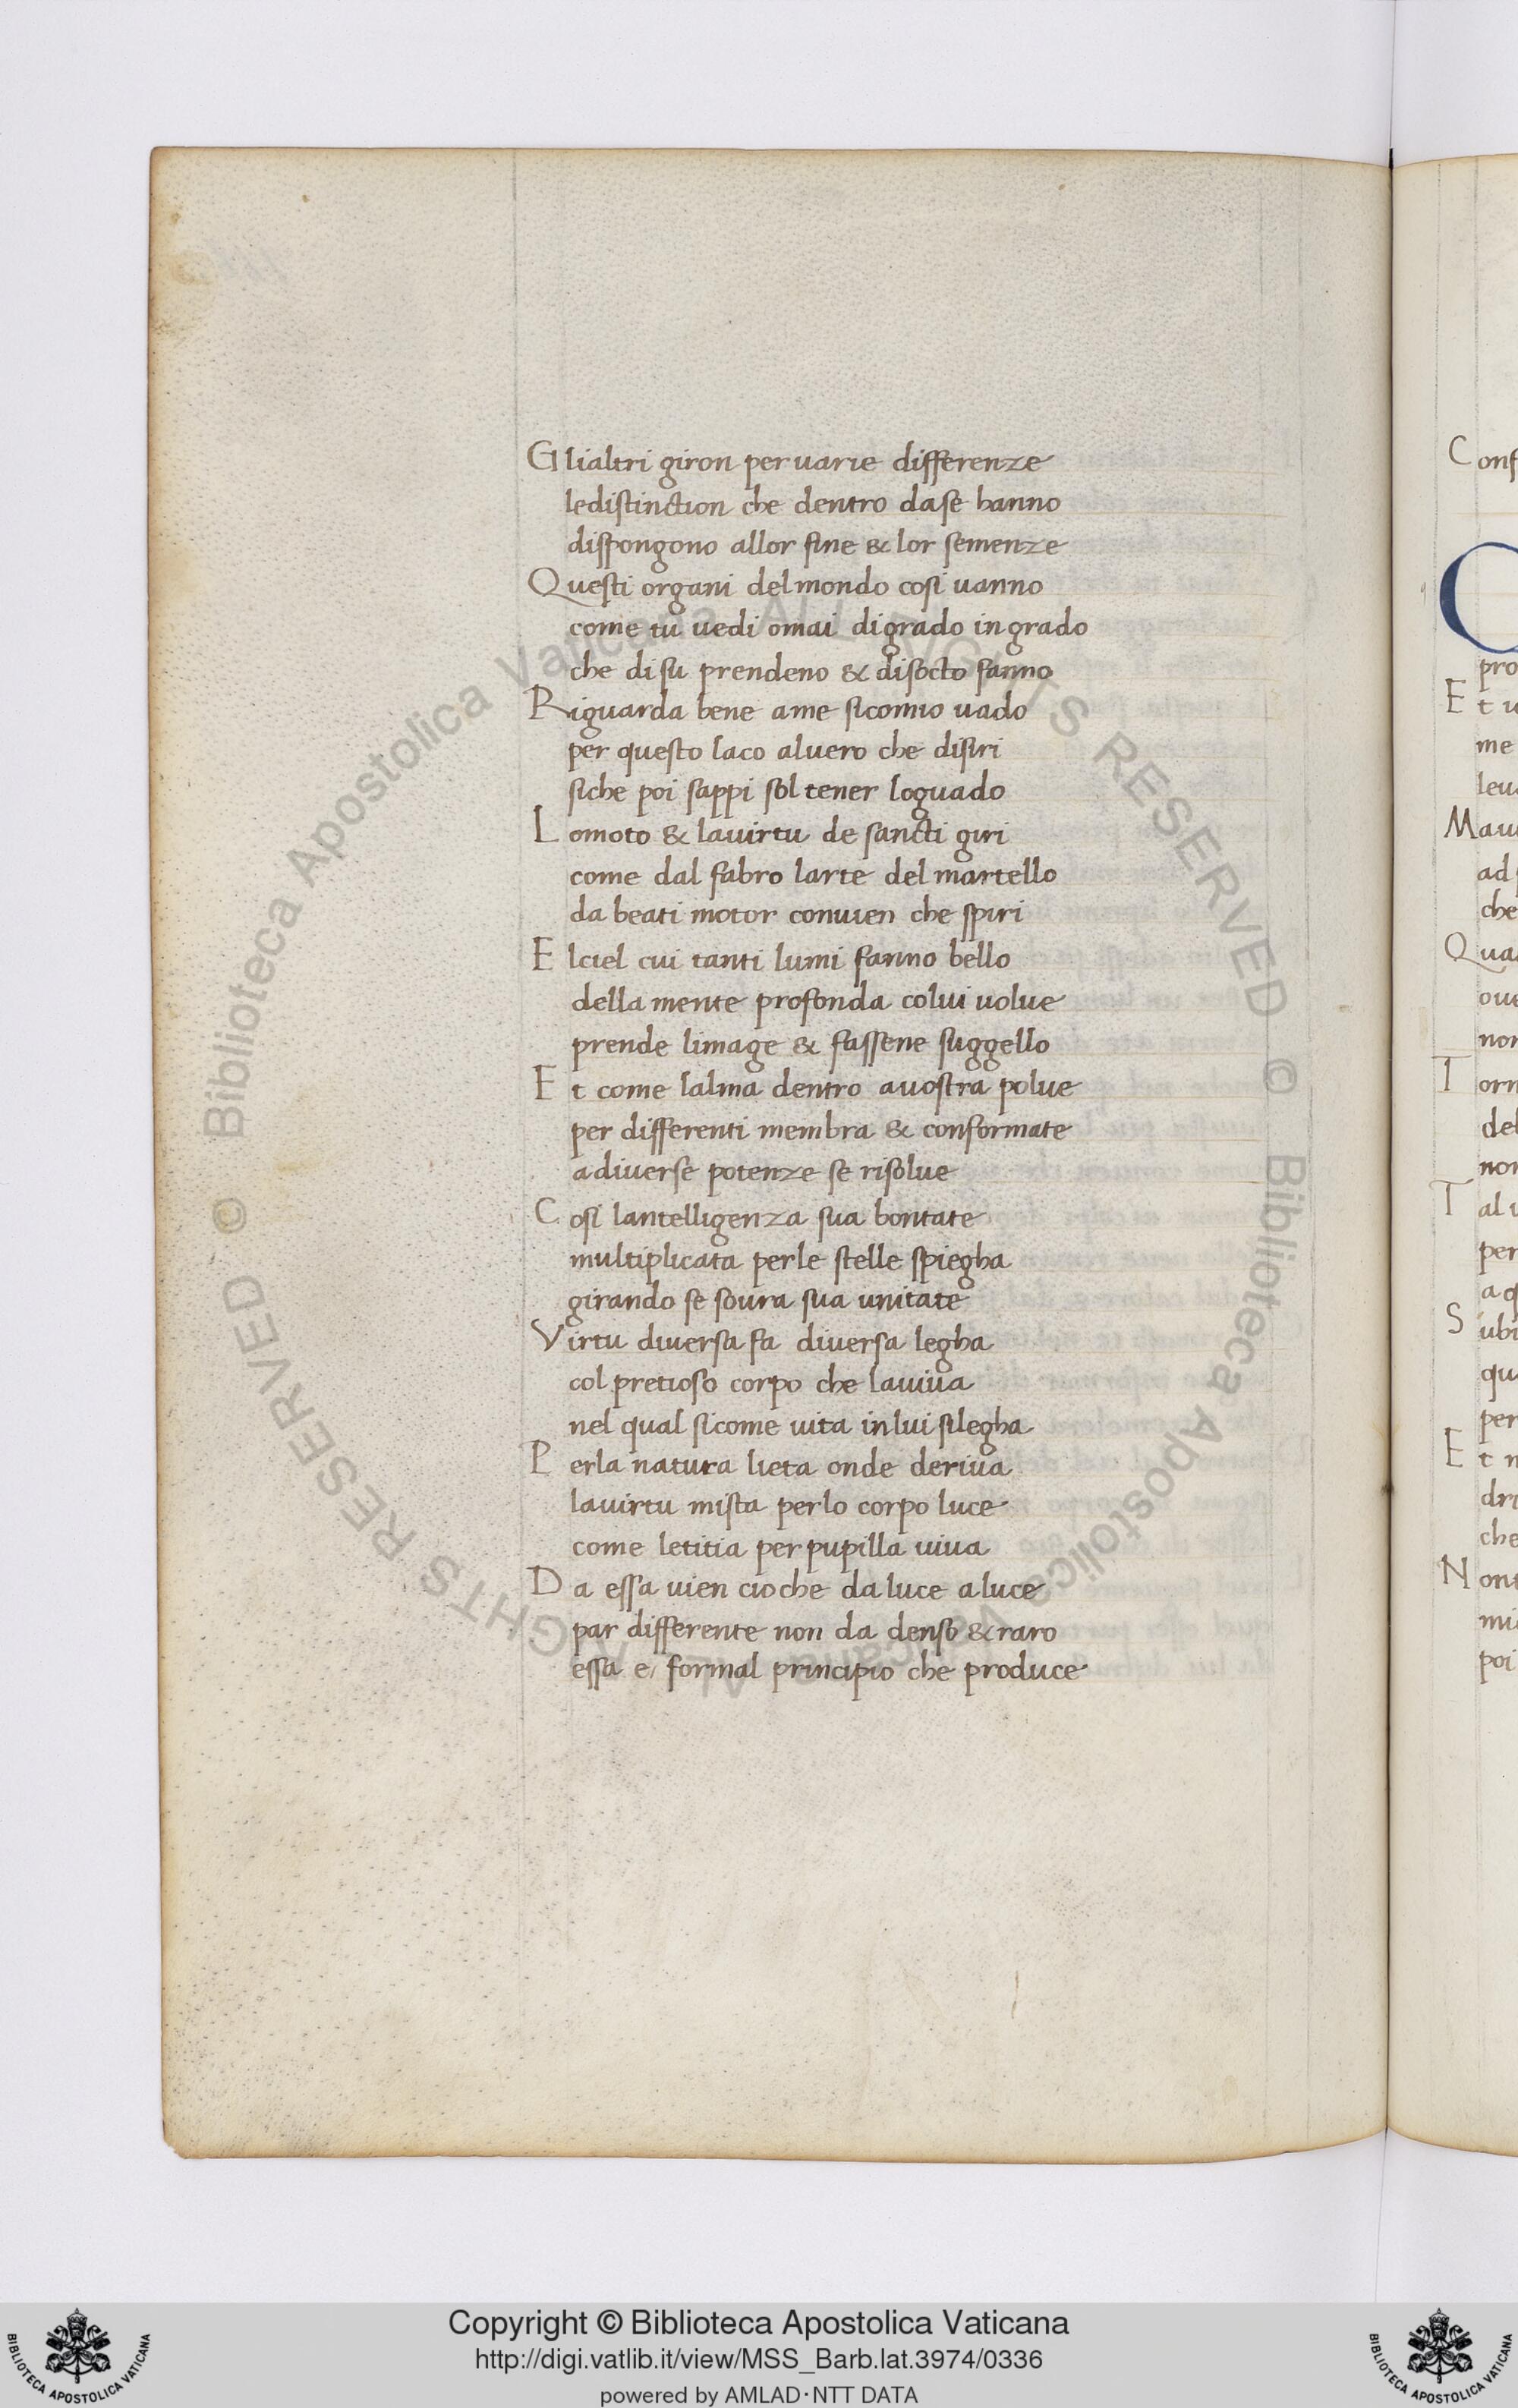 Glialtri giron per uarie differenze
ledistinction che dentro dase hanno
dispongono allor fine & lor semenze
Questi organi delmondo cosi uanno
come tu uedi omai digrado ingrado
che disu prendeno & disocto fanno
Riguarda bene ame sicomio uado
per questo laco aluero che disiri
siche poi sappi sol tener loguado
Lomoto & lauirtu de sancti giri
come dal fabro larte del martello
da beati motor conuien che spiri
Elciel cui tanti lumi fanno bello
della mente profonda colui uolue
prende limage & fassene suggello
Et come lalma dentro auostra polue
per differenti membra & conformate
adiuerse potenze se risolue
Cosi lantelligenza sua bontate
multiplicata perle stelle spiegha
girando se soura sua unitate
Virtu diuersa fa diuersa legha
col pretioso corpo che lauiua
nel qual sicome uita inlui silegha
Perla natura lieta onde deriua
lauirtu mista perlo corpo luce
come letitia per pupilla uiua
Da essa uien cioche daluce aluce
par differente non da denso & raro
essa e, formal principio che produce
Conf
C
pro
Et u
me
leu
Mau
ad
che
Qua
oue
non
Torn
del
non
Tal
per
a q
Subi
qu
per
Et n
dri
che
Non
mi
poi
© Biblioteca Apostolica Vaticana ALL RIGHTS RESERVED © Biblioteca Apostolica Vaticana ALL RIGHTS RESERVED
Copyright © Biblioteca Apostolica Vaticana
http://digi.vatlib.it/view/MSS_Barb.lat.3974/0336
powered by AMLAD·NTT DATA
BIBLIOTECA APOSTOLICA VATICANA
BIBLIOTECA APOSTOLICA VATICANA